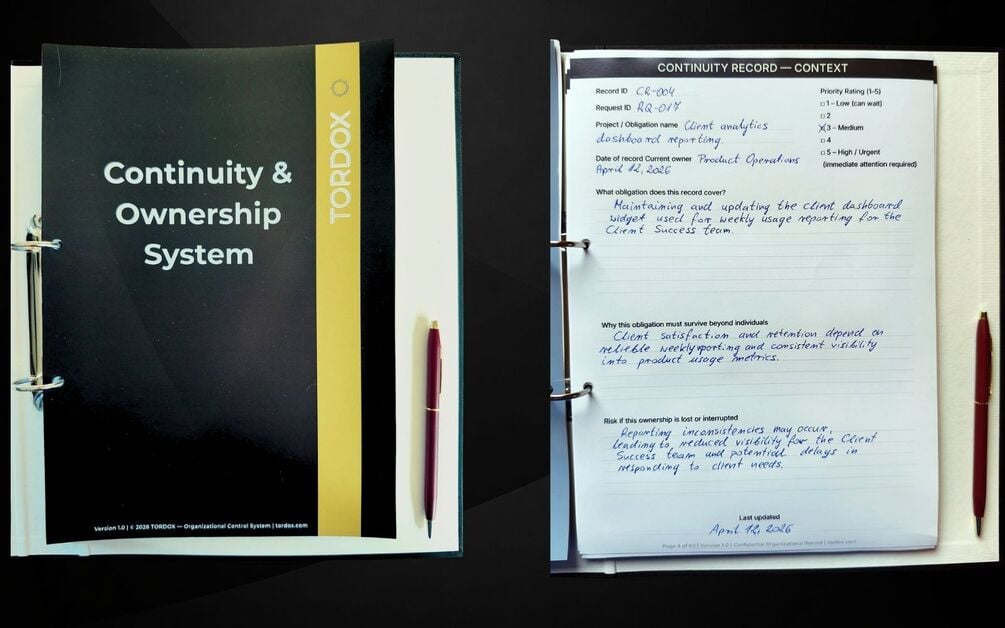 Continuity &
Ownership
System
TORDOX
Version 1.0 | © 2026 TORDOX — Organizational Control System | tordox.com
CONTINUITY RECORD — CONTEXT
Record ID CR-004
Request ID RQ-017
Project / Obligation name Client analytics
dashboard reporting.
Date of record Current owner Product Operations
April 12, 2026
Priority Rating (1–5)
1 – Low (can wait)
2
3 – Medium
4
5 – High / Urgent
(immediate attention required)
What obligation does this record cover?
Maintaining and updating the client dashboard
widget used for weekly usage reporting for the
Client Success team.
Why this obligation must survive beyond individuals
Client satisfaction and retention depend on
reliable weekly reporting and consistent visibility
into product usage metrics.
Risk if this ownership is lost or interrupted
Reporting inconsistencies may occur,
leading to reduced visibility for the Client
Success team and potential delays in
responding to client needs.
Last updated
April 12, 2026
Page 4 of 63 | Version 1.0 | Confidential Organizational Record | tordox.com